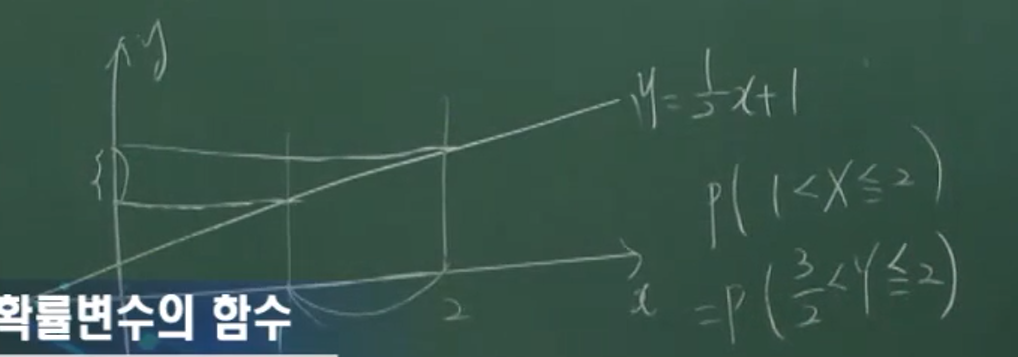 y
y = 1/2 x + 1
P( 1 < X ≤ 2 )
= P( 3/2 < Y ≤ 2 )
x
2
확률변수의 함수